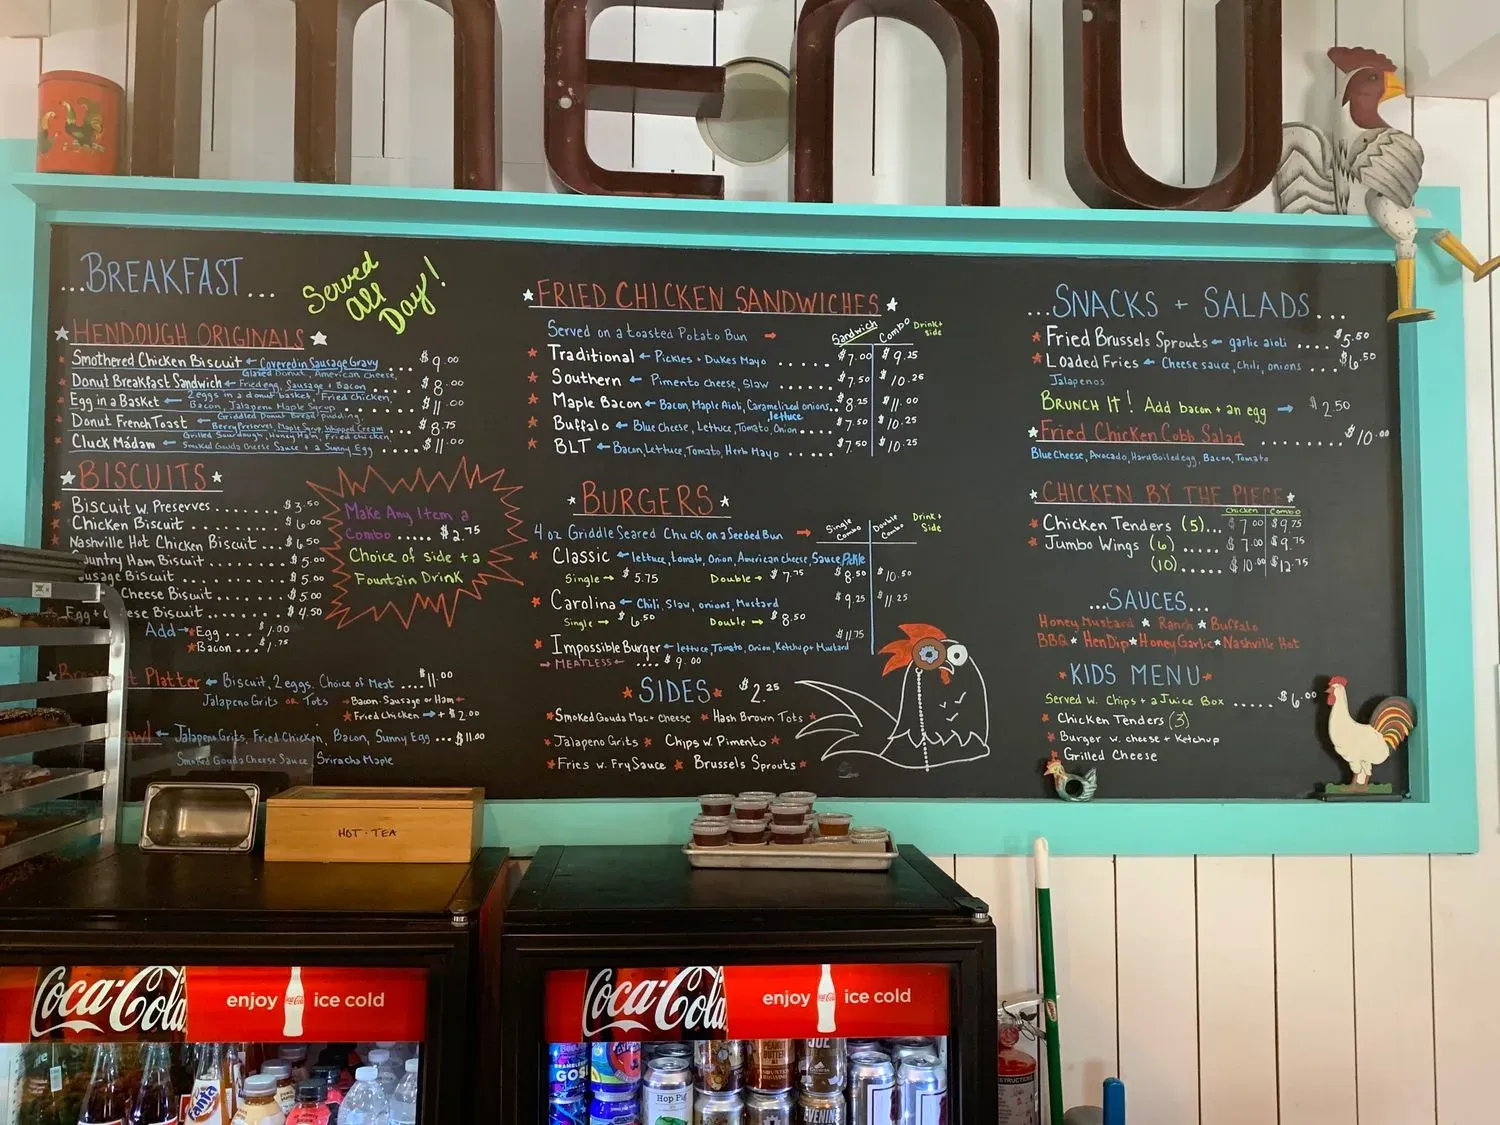 menu
...BREAKFAST...
Served
All
Day!
HENDOUGH ORIGINALS
Smothered Chicken Biscuit ← Covered in Sausage Gravy $9.00
Glazed Donut, American Cheese,
Donut Breakfast Sandwich ← Fried egg, Sausage + Bacon $8.00
2 eggs in a donut basket, Fried Chicken,
Egg in a Basket ← Bacon, Jalapeno Maple Syrup $11.00
Griddled Donut Bread pudding,
Donut French Toast ← Berry Preserves, Maple Syrup Whipped Cream $8.75
Grilled Sourdough, Honey Ham, Fried Chicken
Cluck Mádam ← Smoked Gouda Cheese Sauce + a Sunny Egg $11.00
BISCUITS
Biscuit w. Preserves ....... $3.50
Chicken Biscuit ......... $6.00
Nashville Hot Chicken Biscuit ... $6.50
ountry Ham Biscuit ...... $5.00
usage Biscuit ......... $5.00
Cheese Biscuit ....... $5.00
Egg + Cheese Biscuit ....... $4.50
Add → Egg .... $1.00
Bacon ... $1.75
Make Any Item a
Combo ..... $2.75
Choice of side + a
Fountain Drink
Platter ← Biscuit, 2 eggs, Choice of Meat .... $11.00
Jalapeno Grits OR Tots → Bacon, Sausage or Ham ←
Fried Chicken → + $2.00
← Jalapeno Grits, Fried Chicken, Bacon, Sunny Egg ... $11.00
Smoked Gouda Cheese Sauce, Sriracha Maple
FRIED CHICKEN SANDWICHES
Served on a toasted Potato Bun → Sandwich Combo Drink + side
Traditional ← Pickles + Dukes Mayo ..... $7.00 $9.25
Southern ← Pimento Cheese, Slaw ...... $7.50 $10.25
Maple Bacon ← Bacon, Maple Aioli, Caramelized onions, lettuce $8.25 $11.00
Buffalo ← Blue Cheese, Lettuce, Tomato, Onion .... $7.50 $10.25
BLT ← Bacon, Lettuce, Tomato, Herb Mayo ..... $7.50 $10.25
BURGERS
4 oz Griddle Seared Chuck on a Seeded Bun → Single Combo Double Combo Drink + Side
Classic ← lettuce, tomato, Onion, American cheese, Sauce, Pickle
Single → $5.75 Double → $7.75 $8.50 $10.50
Carolina ← Chili, Slaw, onions, Mustard $9.25 $11.25
Single → $6.50 Double → $8.50
Impossible Burger ← lettuce, Tomato, Onion, Ketchup + Mustard $11.75
→ MEATLESS ← .... $9.00
SIDES $2.25
Smoked Gouda Mac + Cheese Hash Brown Tots
Jalapeno Grits Chips w. Pimento
Fries w. Fry Sauce Brussels Sprouts
...SNACKS + SALADS...
Fried Brussels Sprouts ← garlic aioli .... $5.50
Loaded Fries ← Cheese sauce, chili, onions .... $6.50
Jalapenos
BRUNCH IT! Add bacon + an egg → $2.50
Fried Chicken Cobb Salad ........ $10.00
Blue Cheese, Avocado, Hard Boiled egg, Bacon, Tomato
CHICKEN BY THE PIECE
Chicken Combo
Chicken Tenders (5)... $7.00 $9.75
Jumbo Wings (6) ..... $7.00 $9.75
(10)..... $10.00 $12.75
...SAUCES...
Honey Mustard Ranch Buffalo
BBQ HenDip Honey Garlic Nashville Hot
KIDS MENU
Served w. Chips + a Juice Box ..... $6.00
Chicken Tenders (3)
Burger w. cheese + Ketchup
Grilled Cheese
HOT-TEA
Coca-Cola enjoy ice cold
Coca-Cola enjoy ice cold
Fanta
Hop Pig
EVENING